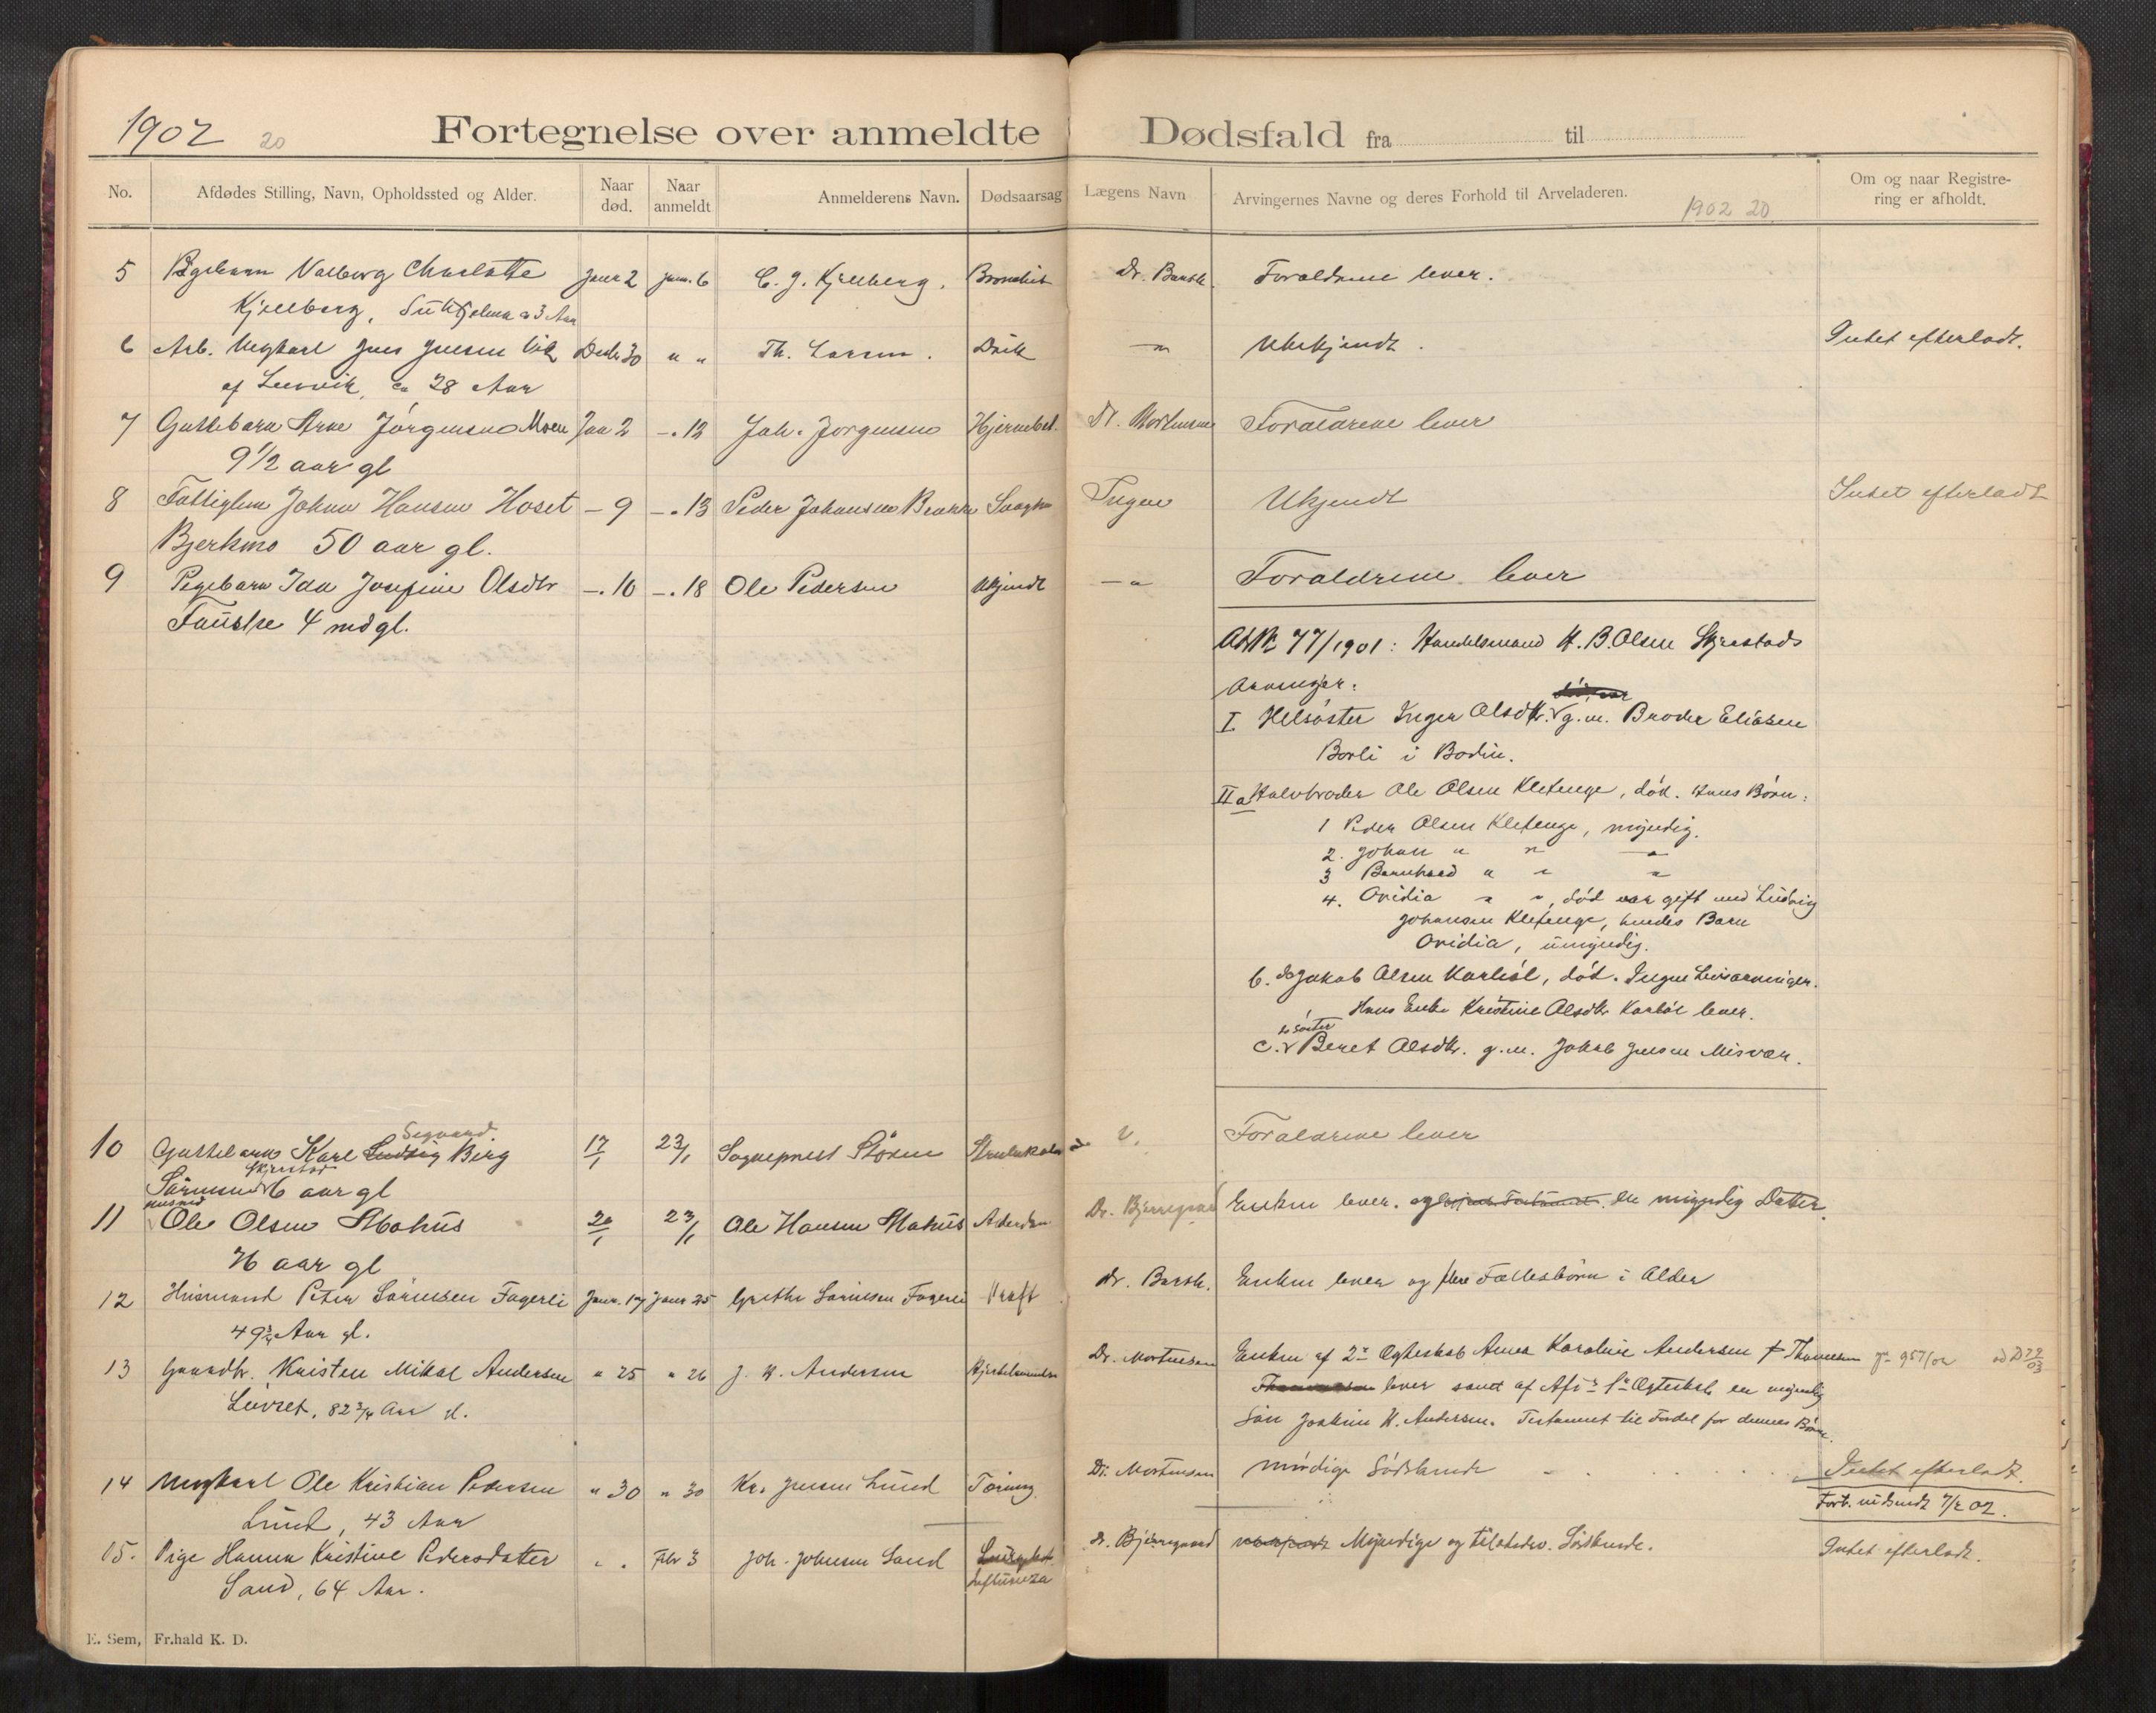 1902
20
Fortegnelse over anmeldte Dødsfald fra til
No.
Afdødes Stilling, Navn, Opholdssted og Alder.
Naar død.
Naar anmeldt
Anmelderens Navn.
Dødsaarsag
Lægens Navn
Arvingernes Navne og deres Forhold til Arveladeren.
1902 20
Om og naar Registre-
ring er afholdt.
5 Pigebarn Valborg Charlotte Janr 2 Jan. 6 C. J. Kjellberg. Bronchit Dr. Barth Forældrene lever.
Kjellberg, Sulitjelma 3 Aar
6 Arb. Ungkarl Jens Jensen Dcbr 30 " " Th. Larsen. Drik — " Ubekjendt. Intet efterladt.
af Leirvik, ca 28 Aar
7 Guttebarn Arne Jørgensen Moen Jan 2 —. 13 Joh. Jørgensen Hjernebet. Dr. Mortensen Forældrene lever
9 1/2 aar gl
8 Fattiglem Johan Hansen Hoset — 9 —. 13 Peder Johansen Ingen Ukjendt Intet efterladt
Bjerkmo 50 aar gl.
9 Pigebarn Ida Josefine Olsdtr —. 10 —. 18 Ole Pedersen Ukjendt — " Forældrene lever
Fauske 4 md gl.
Ad No 77/1901: Handelsmand H. B. Olsen Skjerstads
Arvinger:
I Helsøster Inger Olsdtr. g. m. Broder Eliasen
Borli i Bodin.
II a Halvbroder Ole Olsen Kletenge, død. Hans Børn:
1 Peder Olsen Kletenge, myndig.
2. Johan " " — "
3 Bernhard " " "
4. Ovidia " ", død var gift med Ludvig
Johansen Kletenge, hendes Barn
Ovidia, umyndig.
b. do Jakob Olsen Karbøl, død. Ingen Livsarvinger.
Hans Enke Kristine Olsdtr Karbøl lever.
do søster
c. Beret Olsdtr. g. m. Jakob Jensen Misvær.
Segvard
10 Guttebarn Karl Ludvig Berg 17/1 23/1 Sogneprest Støren v. Forældrene lever
Skjerstad
6 aar gl
11 Ole Olsen Stohus 20/1 23/1 Ole Hansen Dr. Bjerregaard Enken lever. og en myndig Datter.
76 aar gl
12 Husmand Peter Sørensen Fagerli Janr. 17 Janr 25 Grethe Sørensen Fagerli Kræft Dr. Barth. Enken lever og flere Fællesbørn i Alder
49 3/4 Aar gl.
13 Gaardbr. Kristen Mikal Andersen " 25 " 26 J. K. Andersen Dr. Mortensen Enken af 2' Ægteskab Anna Karoline Andersen f. Thomessen
Løvset, 82 3/4 Aar gl. lever samt af Afd's 1' Ægteskab en myndig
Søn Joakim K. Andersen. Testament til Fordel for dennes Børn.
14 Ungkarl Ole Kristian Pedersen " 30 " 30 Kr. Jensen Lund Tæring Dr. Mortensen myndige Sødskende Intet efterladt.
Lund, 43 Aar Forb. udsendt 7/2 02.
15. Pige Hanna Kristine Pedersdatter " . Febr 3 Joh. Johnsen Sand Influenza Dr. Bjerregaard Myndige og tilstedev. Sødskende. Intet efterladt.
Sand, 64 Aar.
E. Sem, Fr.hald K. D.